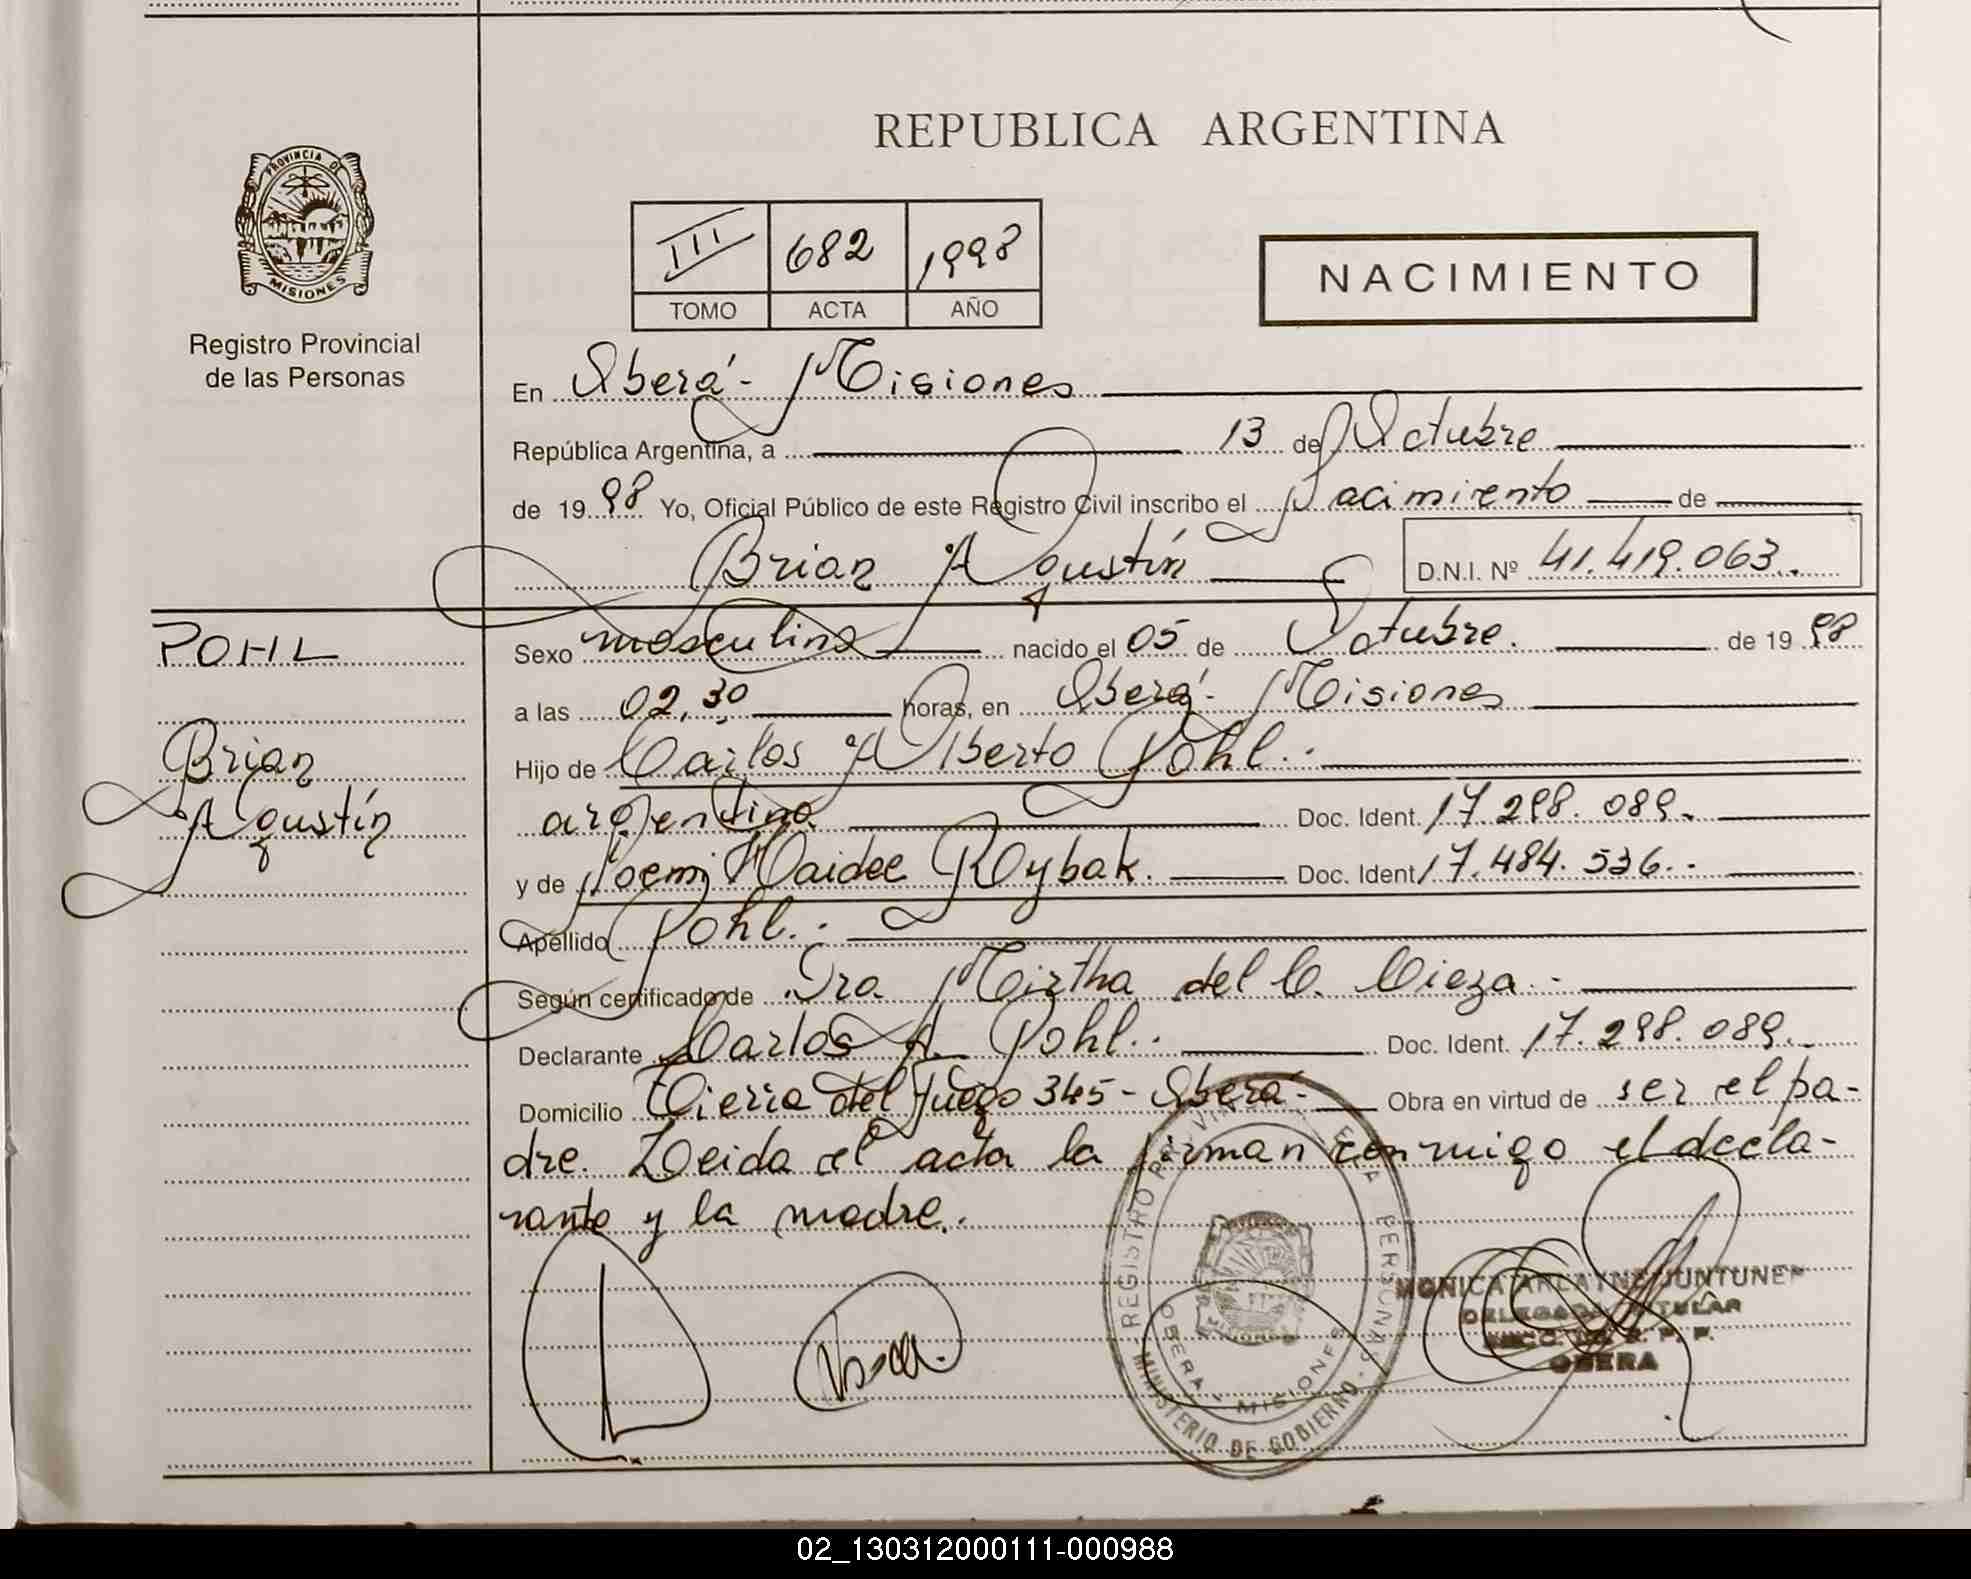 REPUBLICA ARGENTINA
PROVINCIA DE
MISIONES
Registro Provincial
de las Personas
III 682 1998
TOMO ACTA AÑO
NACIMIENTO
En Oberá - Misiones
República Argentina, a 13 de Octubre
de 19 98 Yo, Oficial Público de este Registro Civil inscribo el Nacimiento de
Brian Agustín D.N.I. Nº 41.419.063.
POHL
Brian
Agustín
Sexo masculino nacido el 05 de Octubre. de 19 98
a las 02,30 horas, en Oberá - Misiones
Hijo de Carlos Alberto Pohl.
argentino Doc. Ident. 17.298.089.
y de Noemi Haidee Rybak. Doc. Ident 17.484.536.
Apellido Pohl.
Según certificado de Dra. Mirtha del C. Cieza.-
Declarante Carlos A. Pohl. Doc. Ident. 17.298.089.
Domicilio Tierra del Fuego 345 - Oberá - Obra en virtud de ser el pa-
dre. Leida el acta la firman conmigo el decla-
rante y la madre.
REGISTRO PROVINCIAL DE LAS PERSONAS
OBERA - MISIONES
MINISTERIO DE GOBIERNO
MONICA JUNTUNEN
DELEGADA TITULAR
OBERA
02_130312000111-000988